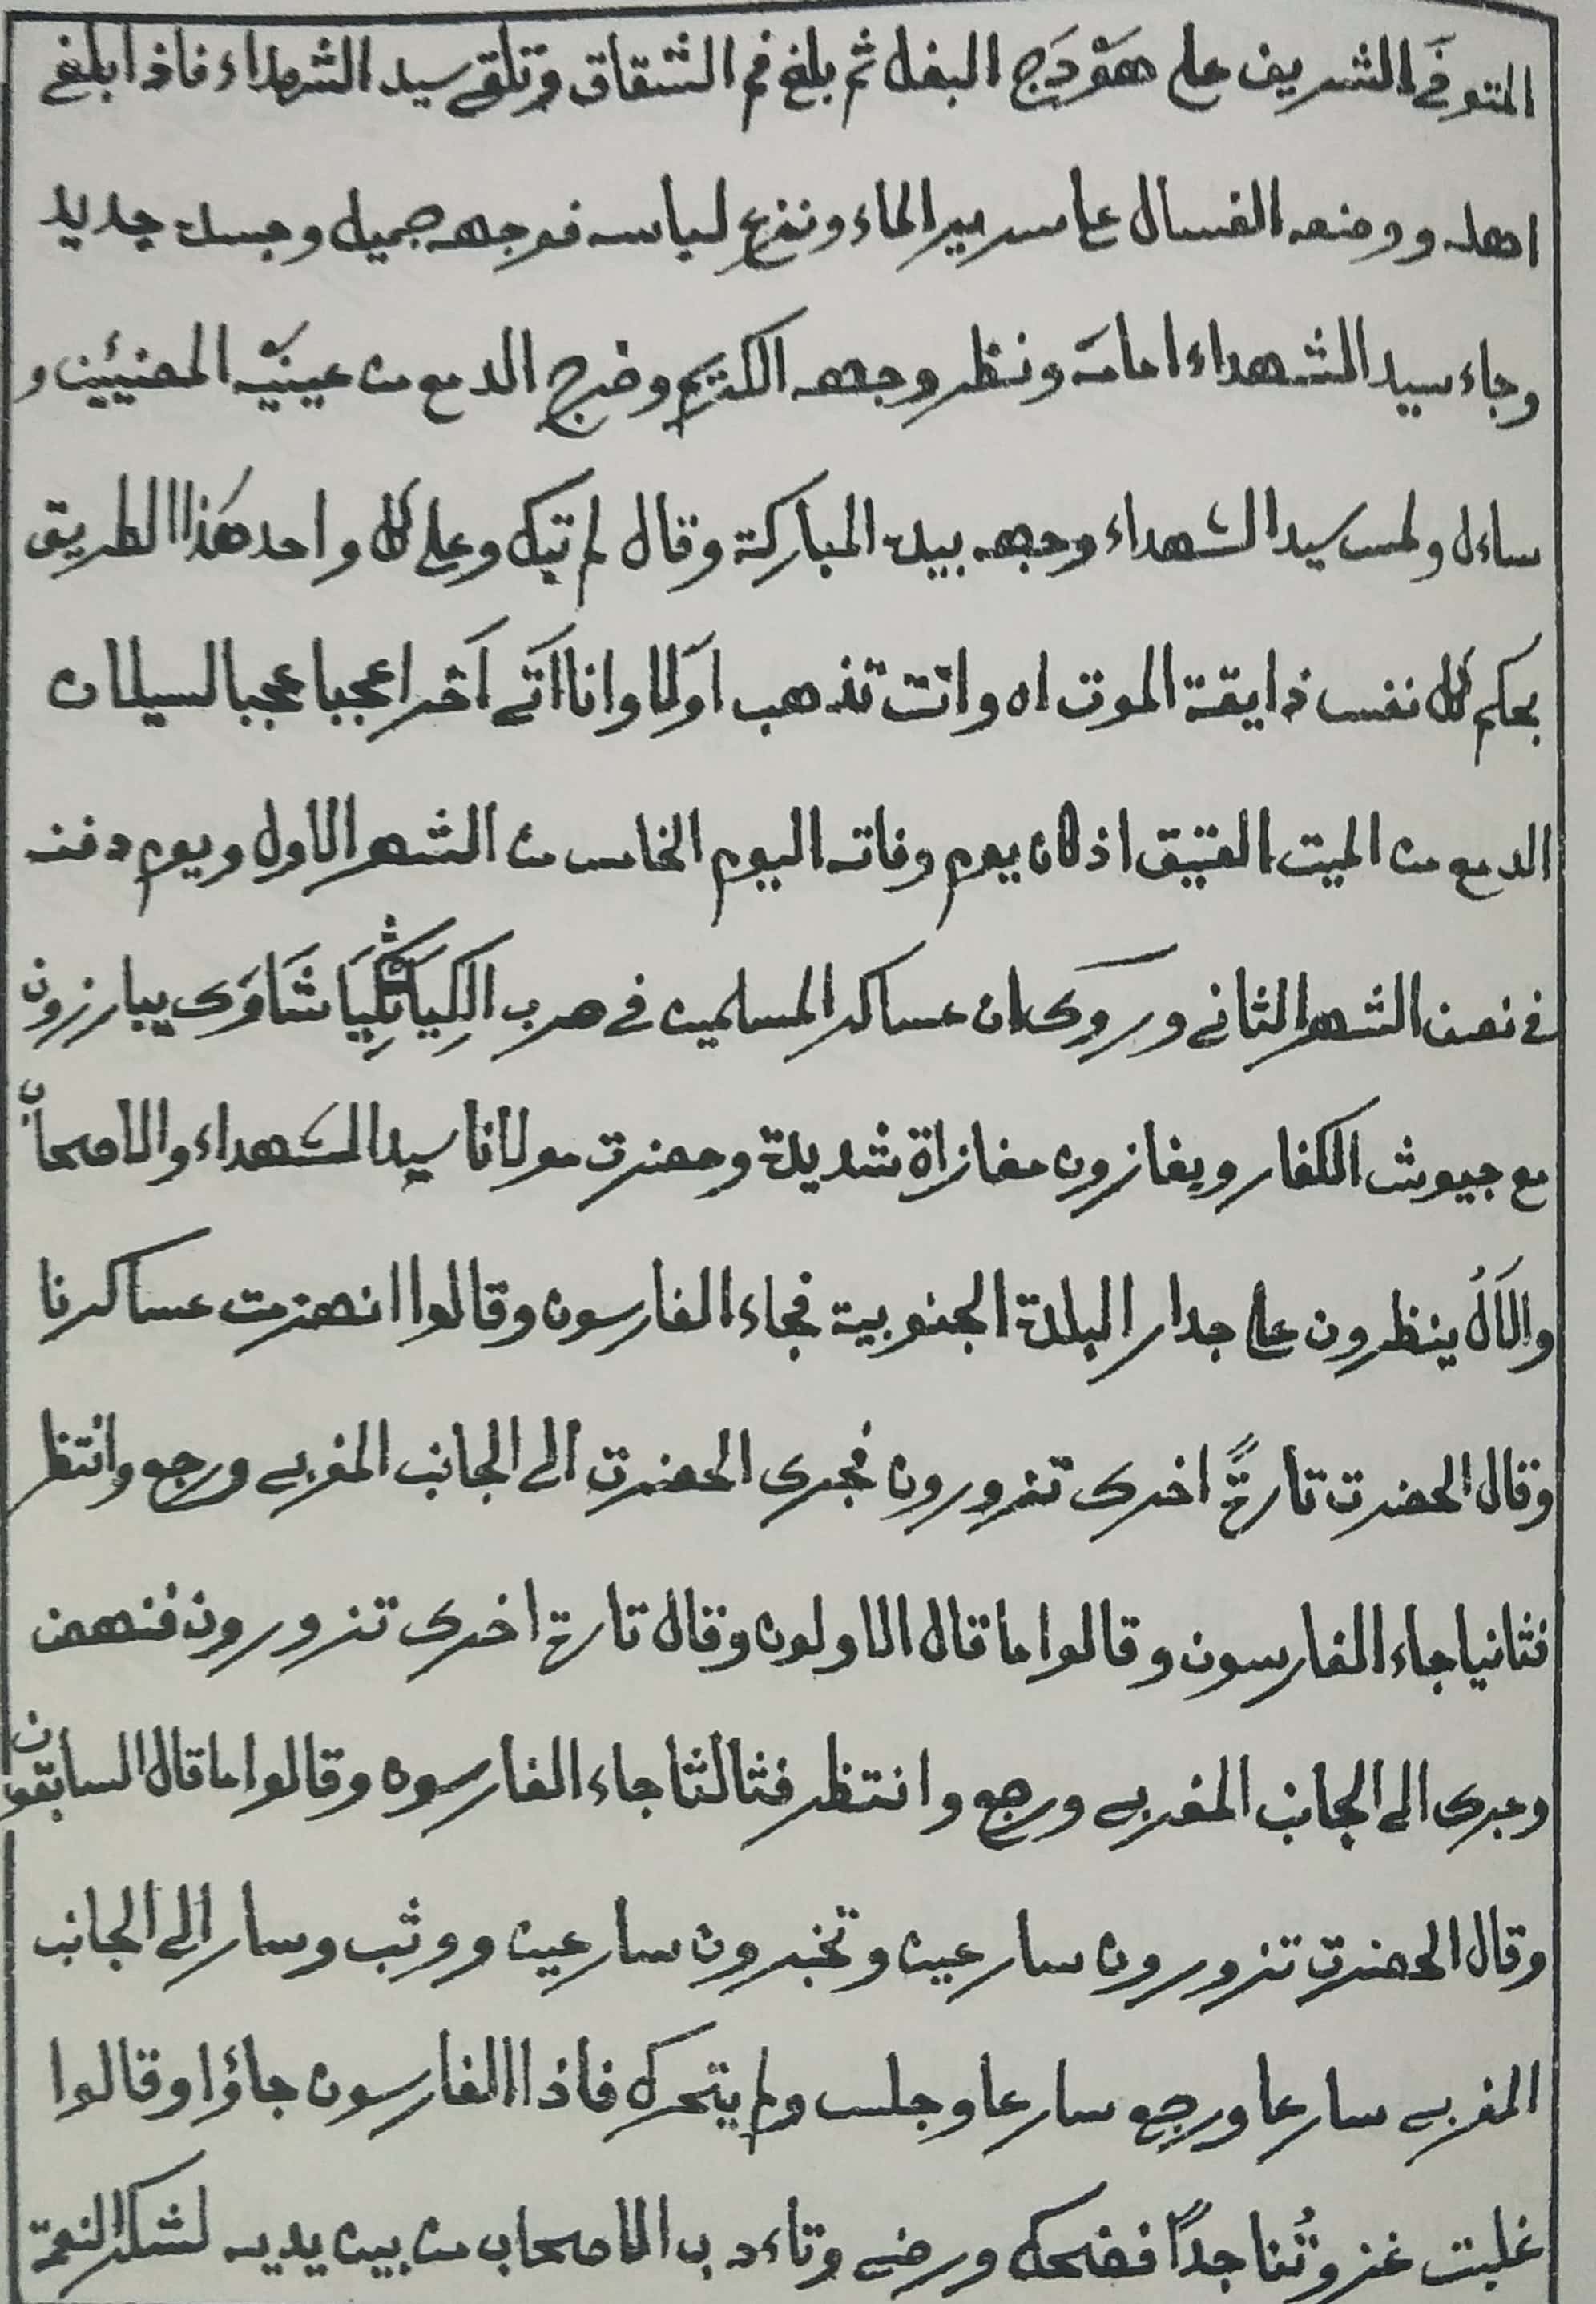 المتوفَى الشريف على هَوْدَجِ البغل ثم بلغ فم الشقاق وتلقى سيد الشهداء فاذا بلغ
اهله ووضعه الغسال على سرير الماء ونزع لباسه فوجهه جميل وجسده جديد
وجاء سيد الشهداء امامه ونظر وجهه الكريم وخرج الدمع من عينَيْه المضيئين و
ساءل ولمس سيد الشهداء وجهه بيده المباركة وقال لم تبك وعلى كل واحد هَذا الطريق
بحكم كل نفس ذايقة الموت اه وانت تذهب اَولا وانا اَتى اَخرا عجبا عجبا لسيلان
الدمع من الميت العتيق اذ كان يوم وفاته اليوم الخامس من الشهر الاول ويوم دفنه
فى نصف الشهر الثانى وروى كان عساكر المسلمين فى حرب يبارزون
مع جيوش الكفار ويغازون مغازاة شديدة وحضرت مولانا سيد الشهداء والاصحاب
والاَلُ ينظرون على جدار البلدة الجنوبية فجاء الفارسون وقالوا انهزمت عساكرنا
وقال الحضرت تارةً اخرى تزورون فجرى الحضرت الى الجانب المغربى ورجع وانتظر
فثانيا جاء الفارسون وقالوا ما قال الاولون وقال تارة اخرى تزورون فنهض
وجرى الى الجانب المغربى ورجع وانتظر فثالثا جاء الفارسون وقالوا ما قال السابقون
وقال الحضرت تزورون سارعين وتخبرون سارعين ووثب وسار الى الجانب
المغربى سارعا ورجع سارعا وجلس ولم يتحرك فاذا الفارسون جاؤا وقالوا
غلبت غزوتُنا جداً فضحك ورضى وتاءدب الاصحاب من بين يديه لشكر النعمة